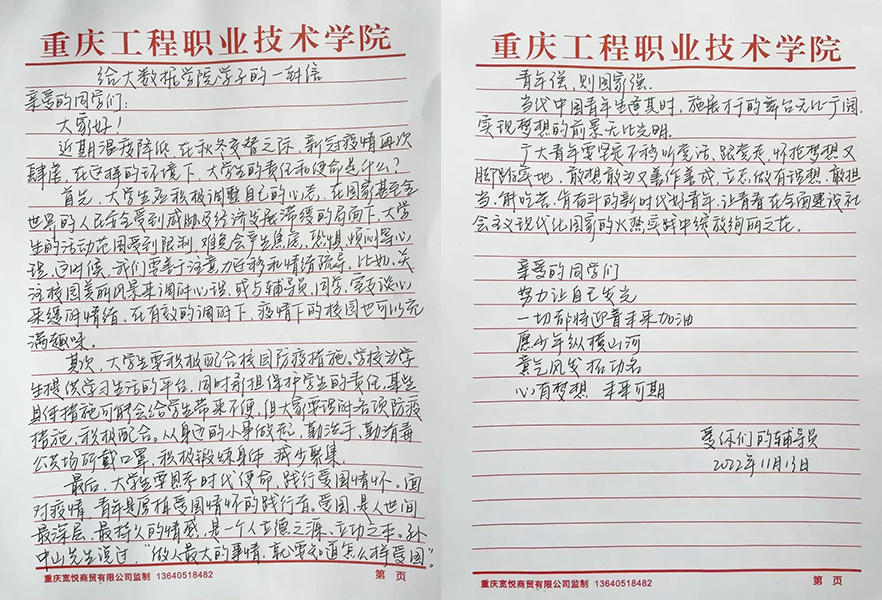 重庆工程职业技术学院
给大数据学院学子的一封信
亲爱的同学们:
大家好!
近期温度降低,在秋冬交替之际,新冠疫情再次
肆虐,在这样的环境下,大学生的责任和使命是什么?
首先,大学生应积极调整自己的心态,在国家甚至全
世界的人民安全受到威胁及经济发展滞缓的局面下,大学
生的活动范围受到限制,难免会产生焦虑、恐惧、烦闷等心
理,这时候,我们要善于注意力迁移和情绪疏导,比如:关
注校园美丽风景来调研心理,或与辅导员、同学、室友谈心
来缓解情绪,在有效的调研下,疫情下的校园也可以充
满趣味。
其次,大学生要积极配合校园防疫措施,学校为学
生提供学习生活的平台,同时承担保护学生的责任,某些
具体措施可能会给学生带来不便,但大家要理解各项防疫
措施,积极配合,从身边的小事做起,勤洗手,勤消毒
公共场所戴口罩,积极锻炼身体,减少聚集。
最后,大学生要思考时代使命,践行爱国情怀。面
对疫情,青年是厚植爱国情怀的践行者。爱国,是人世间
最深层、最持久的情感,是一个人立德之源、立功之本。孙
中山先生说过,“做人最大的事情,就要知道怎么样爱国”。
重庆宽悦商贸有限公司监制 13640518482 第 页
重庆工程职业技术学院
青年强,则国家强.
当代中国青年生逢其时,施展才干的舞台无比广阔,
实现梦想的前景无比光明.
广大青年要坚定不移听党话、跟党走,怀抱梦想又
脚踏实地,敢想敢为又善作善成,立志做有理想、敢担
当、能吃苦、肯奋斗的新时代好青年,让青春在全面建设社
会主义现代化国家的火热实践中绽放绚丽之花。
亲爱的同学们
努力让自己发光
一切都将迎着未来加油
愿少年纵横山河
意气风发拓功名
心有梦想 未来可期
爱你们的辅导员
2022年11月13日
重庆宽悦商贸有限公司监制 13640518482 第 页